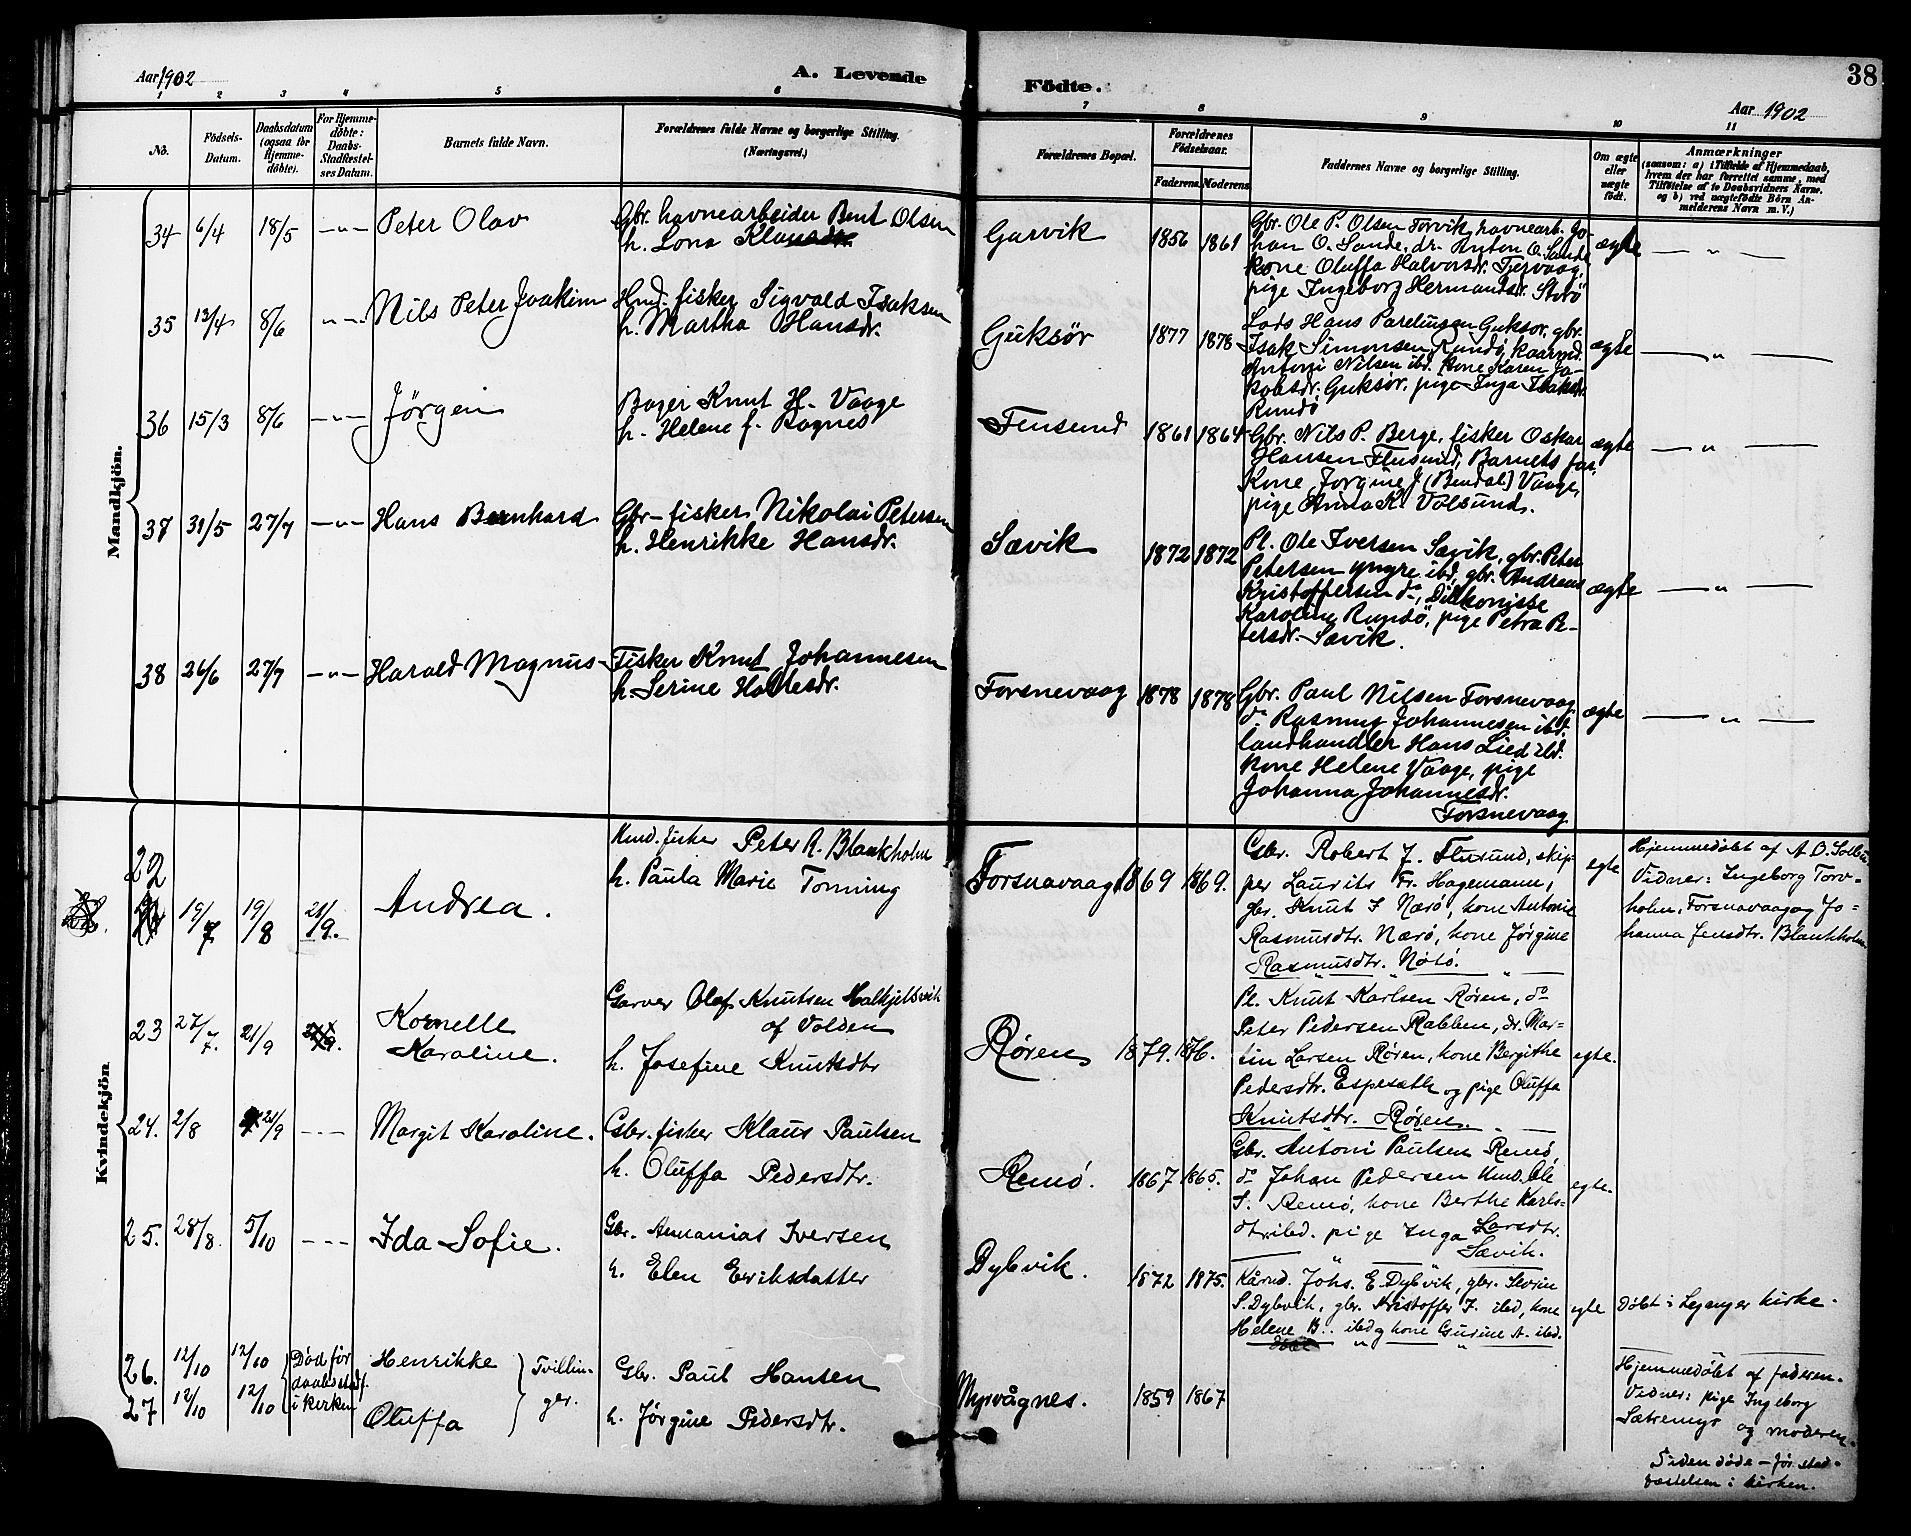 Aar 1902
A. Levende
Födte.
38
Aar 1902
1 2 3 4 5 6 7 8 9 10 11
No.
Födsels-
Datum.
Daabsdatum
(ogsaa for
Hjemme-
döbte).
For Hjemme-
döbte:
Daabs-
Stadfæstel-
ses Datum.
Barnets fulde Navn.
Forældrenes fulde Navne og borgerlige Stilling.
(Næringsvei.)
Forældrenes Bopæl.
Forældrenes
Födselsaar.
Faderens. Moderens.
Faddernes Navne og borgerlige Stilling.
Om ægte
eller
uægte
födt.
Anmærkninger
(saasom: a) i Tilfælde af Hjemmedaab,
hvem der har forrettet samme, med
Tilföielse af to Daabsvidners Navne.
og b) ved uægtefödte Börn An-
melderens Navn m. V.)
Mandkjön.
34 6/4 18/5 -"- Peter Olav
Gbr. havnearbeider Bent Olsen
h. Lona Klausdr.
Garvik 1856 1861
Gbr. Ole P. Olsen Torvik, havnearb. Jo-
han O. Sande, dr. Anton O. Sande
kone Oluffa Halvorsdr. Tjervaag,
pige Ingeborg Hermandsdr. Storö
ægte - " -
35 13/4 8/6 -"- Nils Peter Joakim
Hmd. fisker Sigvald Isaksen
h. Martha Hansdr.
Guksør 1877 1878
Lods Hans Pareliussen Guksör, gbr.
Isak Simonsen Rundö, kaarmd.
Antoni Nilsen ibd. kone Karen Ja-
kobsdr. Guksør, pige Inga Isaksdr.
Rundö
ægte - " -
36 15/3 8/6 -"- Jörgen
Bager Knut H. Vaage
h. Helene f. Rognes
Flusund 1861 1864
Gbr. Nils P. Berge, fisker Oskar
Hansen Flusund, Barnets far,
Kone Jorgine J (Bendal) Vaage,
pige Anna K. Volsund.
ægte - " -
37 31/5 27/7 -"- Hans Bernhard
Gbr-fisker Nikolai Petersen
h. Henrikke Hansdr.
Sævik 1872 1872
Pl. Ole Iversen Sævik, gbr. Peter
Petersen yngre ibd, gbr. Andreas
Kristoffersen do, Diakonisse
Karoline Rundö, pige Petra Pe-
tersdr. Sævik.
ægte - " -
38 26/6 27/7 -"- Harald Magnus
Fisker Knut Johannesen
h. Serine
Forsnevaag 1878 1878
Gbr. Paul Nilsen Forsnevaag
do. Rasmus Johannesen ibd.
landhandler Hans Lied ibd.
kone Helene Vaage, pige
Johanna Johannesdr.
Forsnevaag
ægte - " -
Kvindekjön
22 19/7 19/8 21/9. Andrea.
Hmd. fisker Peter R. Blankholm
h. Paula Marie Tonning
Forsnavaag 1869 1869.
Gbr. Robert J. Flusund, skip-
per Laurits Fr. Hagemann,
gbr. Knut S Nærö, kone Antonie
Rasmusdtr. Nærö, kone Jörgine
Rasmusdtr. Nötö.
egte
Hjemmedöbt af A. O.
Vidner: Ingeborg Torv-
holm, Forsnavaag og Jo-
hanna Jensdtr. Blankholm
23 27/7. 21/9 Kornelle
Karoline.
Garver Olaf Knutsen Halkjelsvik
af Volden
h. Josefine Knutsdtr
Røren 1879. 1876.
Pl. Knut Karlsen Røren, do
Peter Pedersen Rabben, dr. Mar-
tin Larsen Røren, kone Bergithe
Pedersdtr. Espesæth og pige Oluffa
Knutsdtr. Røren.
egte.
24. 2/8 21/9 - - - Margit Karoline.
Gbr. fisker Klaus Paulsen
h. Oluffa Pedersdtr.
Remö. 1867 1865.
Gbr. Antoni Paulsen Remö,
do Johan Pedersen Hmd. Ole
S. Remö, kone Berthe Karls-
dtr. ibd. pige Inga Larsdtr.
Sævik.
egte.
25. 28/8. 5/10 - - - Ida Sofie.
Gbr. Annanias Iversen
h. Elen Eriksdatter
Dybvik. 1872 1875.
Kårmd. Johs. E. Dybvik, gbr. Sevrin
S. Dybvik, gbr. Kristoffer J. ibd, kone
Helene B. ibd og kone Gurine A. ibd.
egte
Döbt i Leganger kirke.
26. 12/10 12/10 Död før
daabsstadf.
i kirken
Henrikke
27 12/10 12/10 Oluffa
Tvillin-
ger.
Gbr. Paul Hansen
h. Jörgine Pedersdtr.
Myrvågnes. 1859 1867
Hjemmedöbt af faderen.
Vidner: pige Ingeborg
Sætremyr og moderen.
Siden döde - för stad-
fæstelsen i kirken.